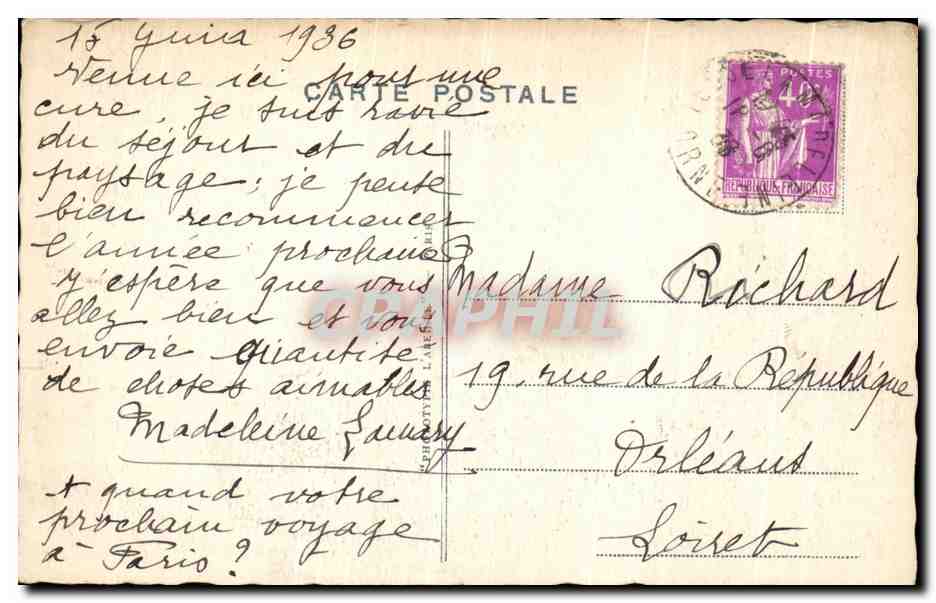 Juin 1936
CARTE POSTALE
Venue ici pour une
cure, je suis ravie
du séjour et du
paysage ; je pense
bien recommencer
l'année prochaine
J'espère que vous
allez bien et vous
envoie quantité
de choses aimables
Madeleine
A quand votre
prochain voyage
à Paris ?
POSTES
40
REPUBLIQUE FRANÇAISE
ORNE
Madame Rochard
19, rue de la République
Orléans
Loiret
CPAPHIL